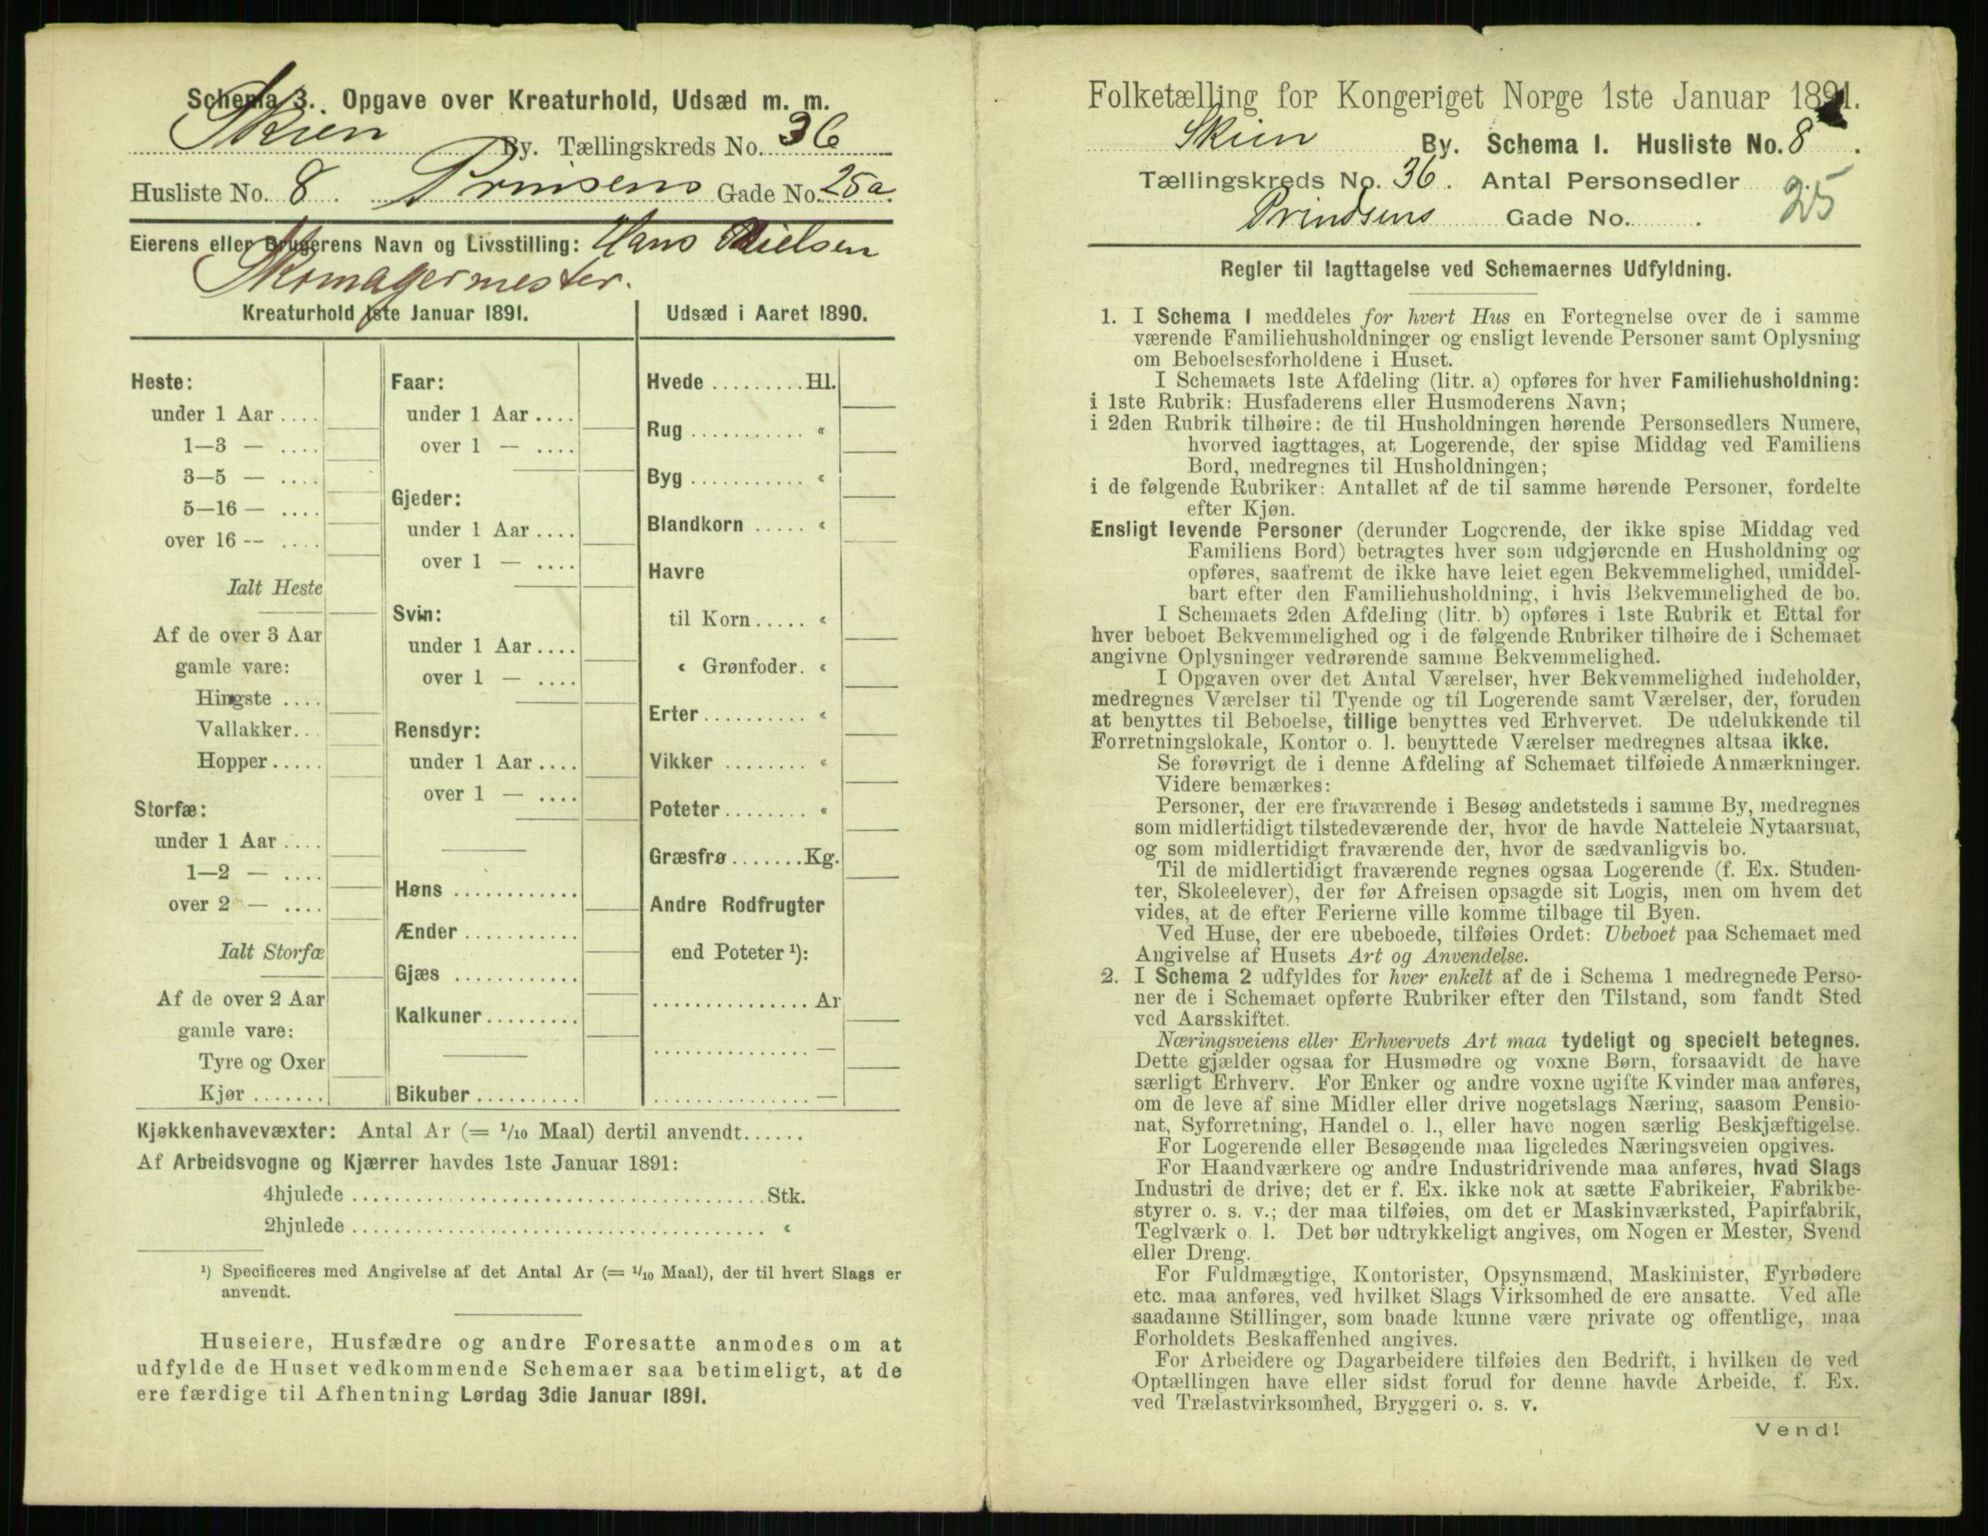 Schema 3. Opgave over Kreaturhold, Udsæd m. m.
Skien By. Tællingskreds No. 36
Husliste No. 8. Prinsens Gade No. 25a
Eierens eller Brugerens Navn og Livsstilling: Hans Nielsen
Skomagermester.
Kreaturhold 1ste Januar 1891.
Heste:
under 1 Aar ....
1—3 — ....
3—5 — ....
5—16 — ....
over 16 -- ....
Ialt Heste
Af de over 3 Aar
gamle vare:
Hingste ....
Vallakker...
Hopper.....
Storfæ:
under 1 Aar ....
1—2 — ....
over 2 — ....
Ialt Storfæ
Af de over 2 Aar
gamle vare:
Tyre og Oxer
Kjør .......
Faar:
under 1 Aar ....
over 1 — ....
Gjeder:
under 1 Aar ....
over 1 — ....
Svin:
under 1 Aar ....
over 1 — ....
Rensdyr:
under 1 Aar ....
over 1 — ....
Høns ............
Ænder ...........
Gjæs ............
Kalkuner.........
Bikuber ..........
Udsæd i Aaret 1890.
Hvede .........Hl.
Rug ........... «
Byg ........... «
Blandkorn ..... «
Havre
til Korn..... «
« Grønfoder. «
Erter.......... «
Vikker ........ «
Poteter ........ «
Græsfrø .......Kg.
Andre Rodfrugter
end Poteter ¹):
............... Ar
............... —
............... —
Kjøkkenhavevæxter: Antal Ar (= 1/10 Maal) dertil anvendt......
Af Arbeidsvogne og Kjærrer havdes 1ste Januar 1891:
4hjulede ........................................Stk.
2hjulede ........................................ «
¹) Specificeres med Angivelse af det Antal Ar (= 1/10 Maal), der til hvert Slags er
anvendt.
Huseiere, Husfædre og andre Foresatte anmodes om at
udfylde de Huset vedkommende Schemaer saa betimeligt, at de
ere færdige til Afhentning Lørdag 3die Januar 1891.
Folketælling for Kongeriget Norge 1ste Januar 1891.
Skien By. Schema I. Husliste No. 8.
Tællingskreds No. 36. Antal Personsedler 25
Prindsens Gade No. .
Regler til Iagttagelse ved Schemaernes Udfyldning.
1. I Schema I meddeles for hvert Hus en Fortegnelse over de i samme
værende Familiehusholdninger og ensligt levende Personer samt Oplysning
om Beboelsesforholdene i Huset.
I Schemaets 1ste Afdeling (litr. a) opføres for hver Familiehusholdning:
i 1ste Rubrik: Husfaderens eller Husmoderens Navn;
i 2den Rubrik tilhøire: de til Husholdningen hørende Personsedlers Numere,
hvorved iagttages, at Logerende, der spise Middag ved Familiens
Bord, medregnes til Husholdningen;
i de følgende Rubriker: Antallet af de til samme hørende Personer, fordelte
efter Kjøn.
Ensligt levende Personer (derunder Logerende, der ikke spise Middag ved
Familiens Bord) betragtes hver som udgjørende en Husholdning og
opføres, saafremt de ikke have leiet egen Bekvemmelighed, umiddel-
bart efter den Familiehusholdning, i hvis Bekvemmelighed de bo.
I Schemaets 2den Afdeling (litr. b) opføres i 1ste Rubrik et Ettal for
hver beboet Bekvemmelighed og i de følgende Rubriker tilhøire de i Schemaet
angivne Oplysninger vedrørende samme Bekvemmelighed.
I Opgaven over det Antal Værelser, hver Bekvemmelighed indeholder,
medregnes Værelser til Tyende og til Logerende samt Værelser, der, foruden
at benyttes til Beboelse, tillige benyttes ved Erhvervet. De udelukkende til
Forretningslokale, Kontor o. l. benyttede Værelser medregnes altsaa ikke.
Se forøvrigt de i denne Afdeling af Schemaet tilføiede Anmærkninger.
Videre bemærkes:
Personer, der ere fraværende i Besøg andetsteds i samme By, medregnes
som midlertidigt tilstedeværende der, hvor de havde Natteleie Nytaarsnat,
og som midlertidigt fraværende der, hvor de sædvanligvis bo.
Til de midlertidigt fraværende regnes ogsaa Logerende (f. Ex. Studen-
ter, Skoleelever), der før Afreisen opsagde sit Logis, men om hvem det
vides, at de efter Ferierne ville komme tilbage til Byen.
Ved Huse, der ere ubeboede, tilføies Ordet: Ubeboet paa Schemaet med
Angivelse af Husets Art og Anvendelse.
2. I Schema 2 udfyldes for hver enkelt af de i Schema 1 medregnede Perso-
ner de i Schemaet opførte Rubriker efter den Tilstand, som fandt Sted
ved Aarsskiftet.
Næringsveiens eller Erhvervets Art maa tydeligt og specielt betegnes.
Dette gjælder ogsaa for Husmødre og voxne Børn, forsaavidt de have
særligt Erhverv. For Enker og andre voxne ugifte Kvinder maa anføres,
om de leve af sine Midler eller drive nogetslags Næring, saasom Pensio-
nat, Syforretning, Handel o. l., eller have nogen særlig Beskjæftigelse.
For Logerende eller Besøgende maa ligeledes Næringsveien opgives.
For Haandværkere og andre Industridrivende maa anføres, hvad Slags
Industri de drive; det er f. Ex. ikke nok at sætte Fabrikeier, Fabrikbe-
styrer o. s. v.; der maa tilføies, om det er Maskinværksted, Papirfabrik,
Teglværk o. l. Det bør udtrykkeligt angives, om Nogen er Mester, Svend
eller Dreng.
For Fuldmægtige, Kontorister, Opsynsmænd, Maskinister, Fyrbødere
etc. maa anføres, ved hvilket Slags Virksomhed de ere ansatte. Ved alle
saadanne Stillinger, som baade kunne være private og offentlige, maa
Forholdets Beskaffenhed angives.
For Arbeidere og Dagarbeidere tilføies den Bedrift, i hvilken de ved
Optællingen have eller sidst forud for denne havde Arbeide, f. Ex.
ved Trælastvirksomhed, Bryggeri o. s. v.
Vend!